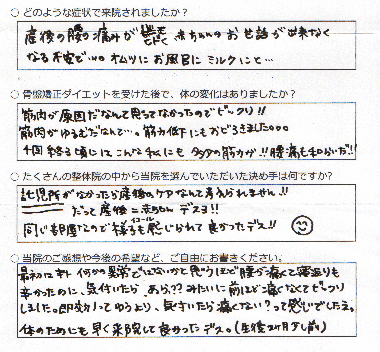 ○ どのような症状で来院されましたか？
産後の腰の痛みが
赤ちゃんのお世話が出来なく
なる不安で… オムツにお風呂にミルクにと…
○ 骨盤矯正ダイエットを受けた後で、体の変化はありましたか？
筋肉が原因だなんて思ってなかったのでビックリ!!
筋肉がゆるむだなんて…。筋力低下にもおどろきました。。。
4回終る頃にはこんな私にも多少の筋力が!!腰痛も和らいだ!!
○ たくさんの整体院の中から当院を選んでいただいた決め手は何ですか？
託児所がなかったら産後のケアなんて考えられません!!
だって産後＝赤ちゃんデスヨ!!
同じ部屋なので様子も感じられて良かったデス!!
○ 当院のご感想や今後の希望など、ご自由にお書きください。
最初は本当に何かの異常ではないかと思うほど腰が痛くて寝返りも
辛かったのに、気付いたら あら??みたいに前ほど痛くなくてビックリ
しました。即効!ってゆうより、気付いたら痛くない?って感じでしたョ。
体のためにも早く来院して良かったデス。(生後2ヶ月すぎ)